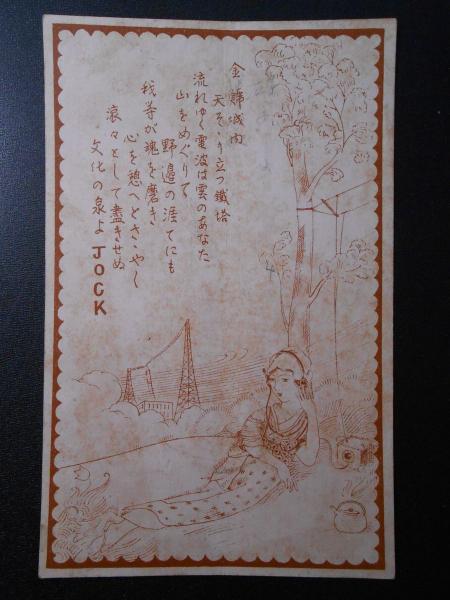 金鯱城内
天そゝり立つ鐵塔
流れゆく電波は雲のあなた
山をめぐりて
野邉の涯てにも
我等が魂を磨き
心を憩へとさゝやし
滾々として盡きせぬ
文化の泉よ JOCK